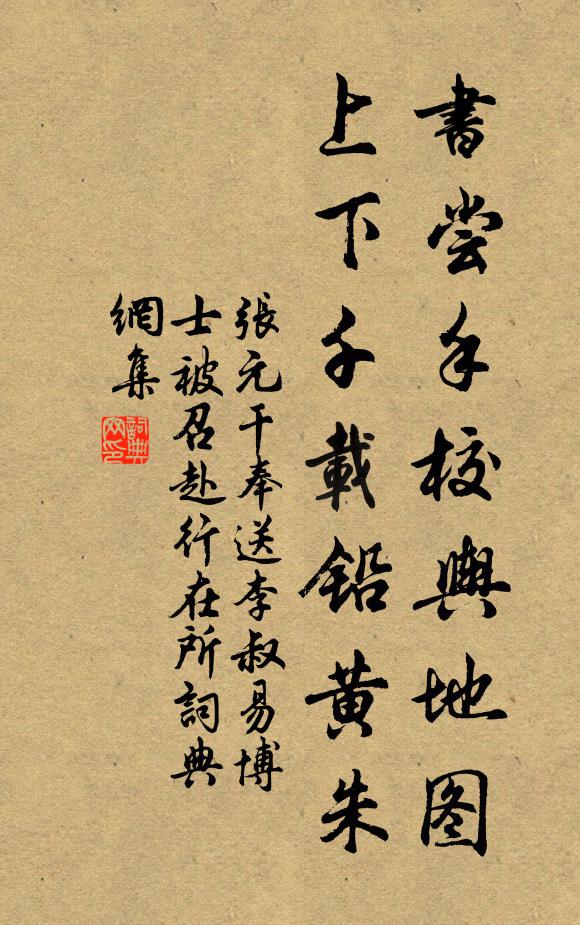 書尝手校輿地图
上下千載鉛黄朱
張元干奉送李叔易博
士被召赴行在所詞典
網集
詞典
网印